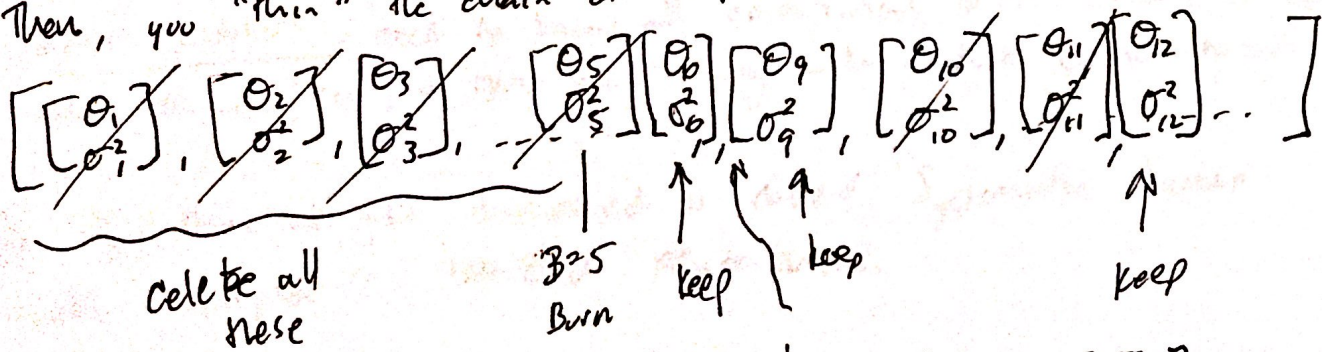 Then, you "thin" the chain
[[θ₁ σ₁²], [θ₂ σ₂²], [θ₃ σ₃²], ---- [θ₅ σ₅²] [θ₆ σ₆²], [θ₉ σ₉²], [θ₁₀ σ₁₀²], [θ₁₁ σ₁₁²], [θ₁₂ σ₁₂²] -- . ]
delete all these
B=5 Burn
keep
keep
keep